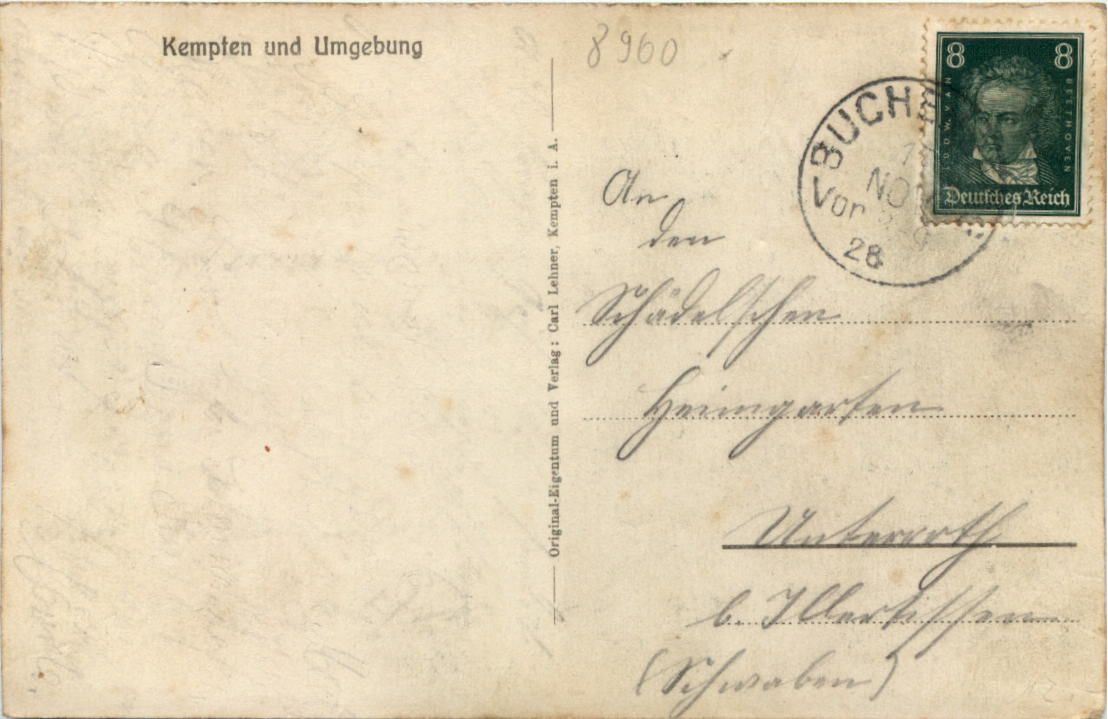 Kempten und Umgebung
8960
Original-Eigentum und Verlag: Carl Lehner, Kempten i. A.
8 8
LUDW. VAN
BEETHOVEN
Deutsches Reich
BUCHE
NO
Vor
28
An
den
Schädelschen
Heimgarten
Unterroth
b. Illertissen
(Schwaben)